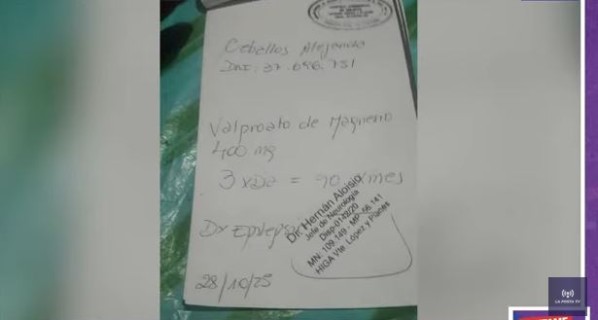 Ceballos Alejandra
DNI: 37.696.751
Valproato de Magnesio
400 mg
3 x Día = 90 x mes
Dx Epilepsia
Dr. Hernán Aloisio
Jefe de Neurología
Disp 0149/20
MN: 109 149 - MP: 56 141
HIGA Vte. López y Planes
28/10/25